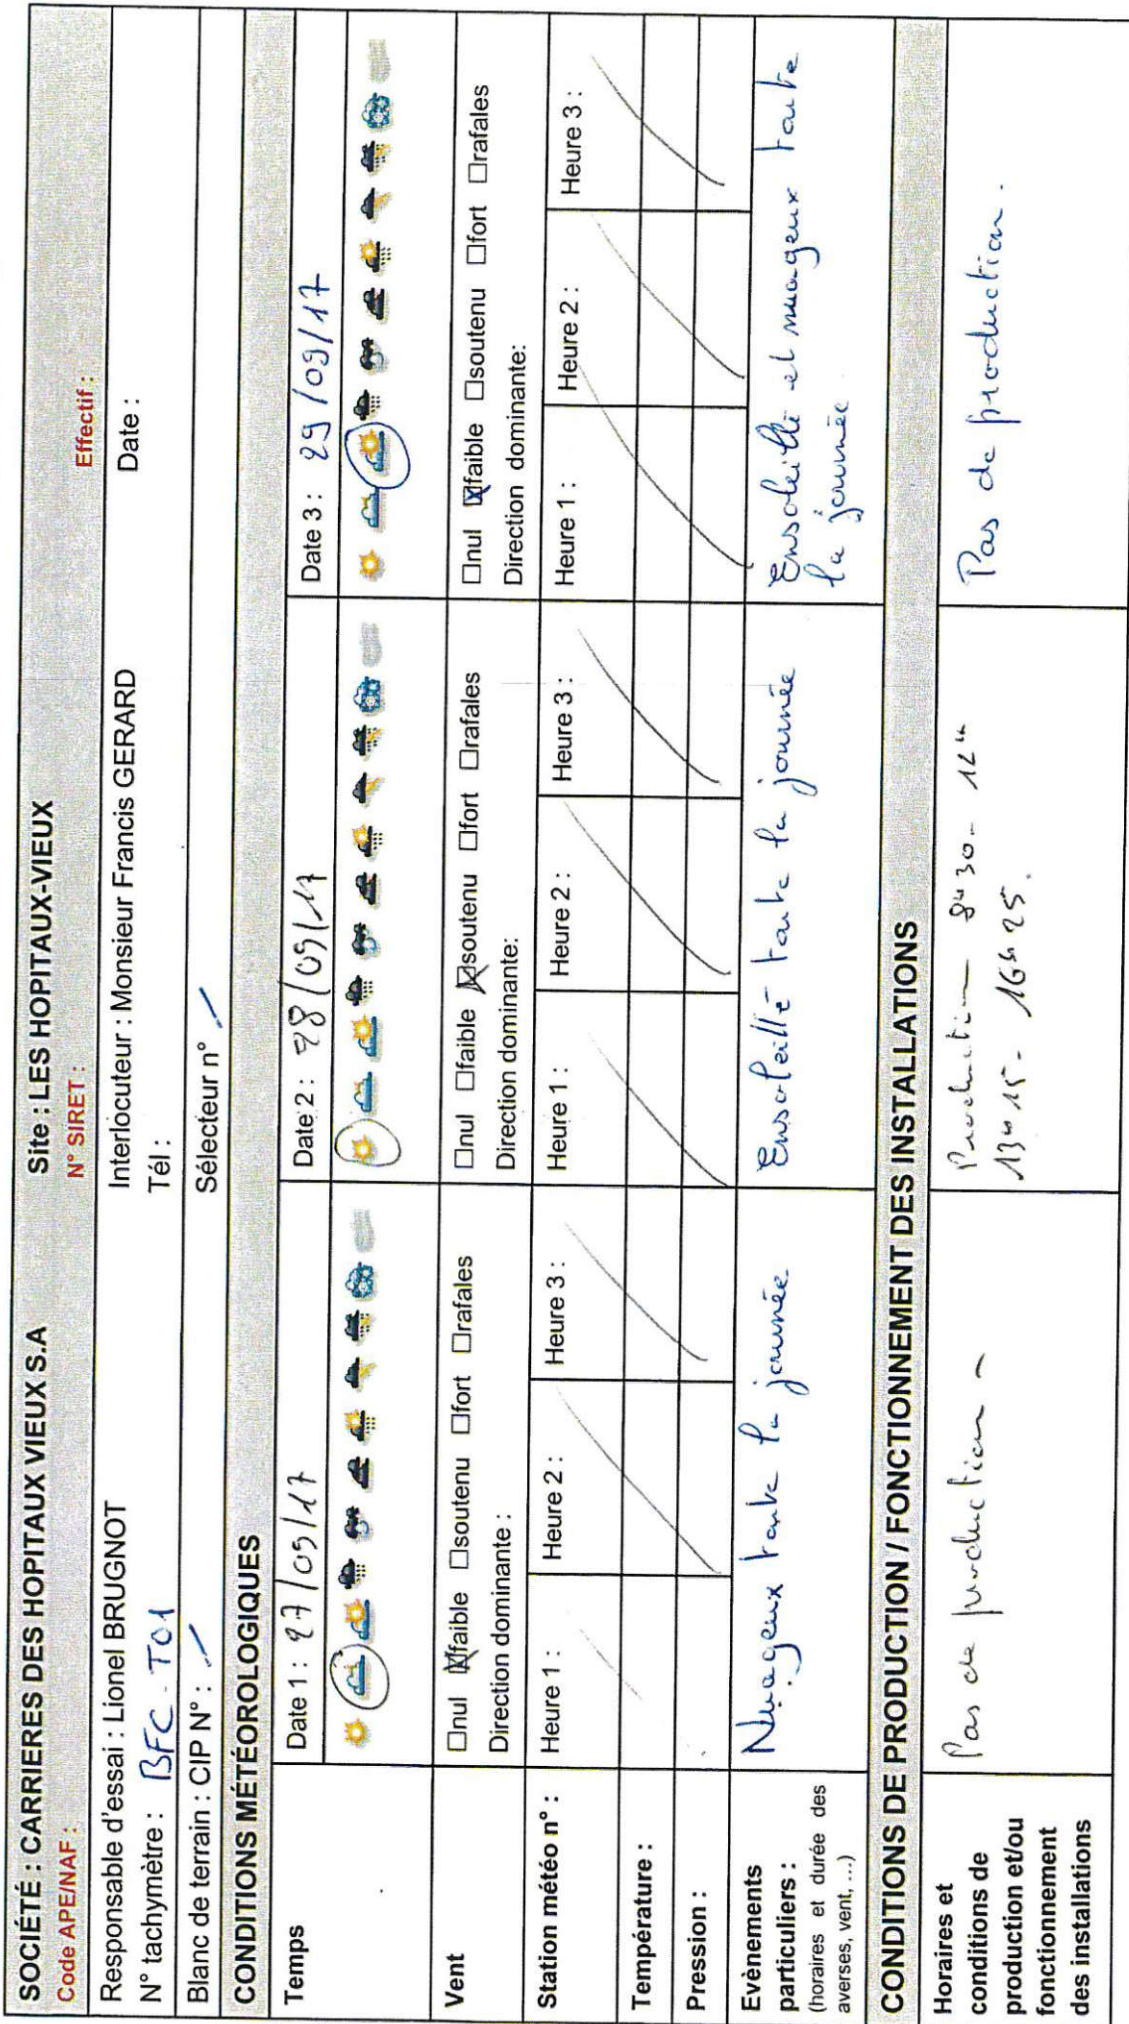 SOCIÉTÉ : CARRIERES DES HOPITAUX VIEUX S.A Site : LES HOPITAUX-VIEUX
Code APE/NAF : N° SIRET : Effectif :
Responsable d'essai : Lionel BRUGNOT Interlocuteur : Monsieur Francis GERARD Date :
N° tachymètre : BFC - T01 Tél :
Blanc de terrain : CIP N° : / Sélecteur n° /
CONDITIONS MÉTÉOROLOGIQUES
Temps Date 1 : 27/09/17 Date 2 : 28/09/17 Date 3 : 29/09/17
Vent ☐nul ☒faible ☐soutenu ☐fort ☐rafales ☐nul ☐faible ☒soutenu ☐fort ☐rafales ☐nul ☒faible ☐soutenu ☐fort ☐rafales
Direction dominante : Direction dominante: Direction dominante:
Station météo n° : Heure 1 : Heure 2 : Heure 3 : Heure 1 : Heure 2 : Heure 3 : Heure 1 : Heure 2 : Heure 3 :
Température :
Pression :
Evènements
particuliers :
(horaires et durée des
averses, vent, ...)
Nuageux toute la journée
Ensoleillé toute la journée
Ensoleillé et nuageux toute
la journée
CONDITIONS DE PRODUCTION / FONCTIONNEMENT DES INSTALLATIONS
Horaires et
conditions de
production et/ou
fonctionnement
des installations
Pas de production -
Production 8h30- 12h
13h15- 16h25.
Pas de production.